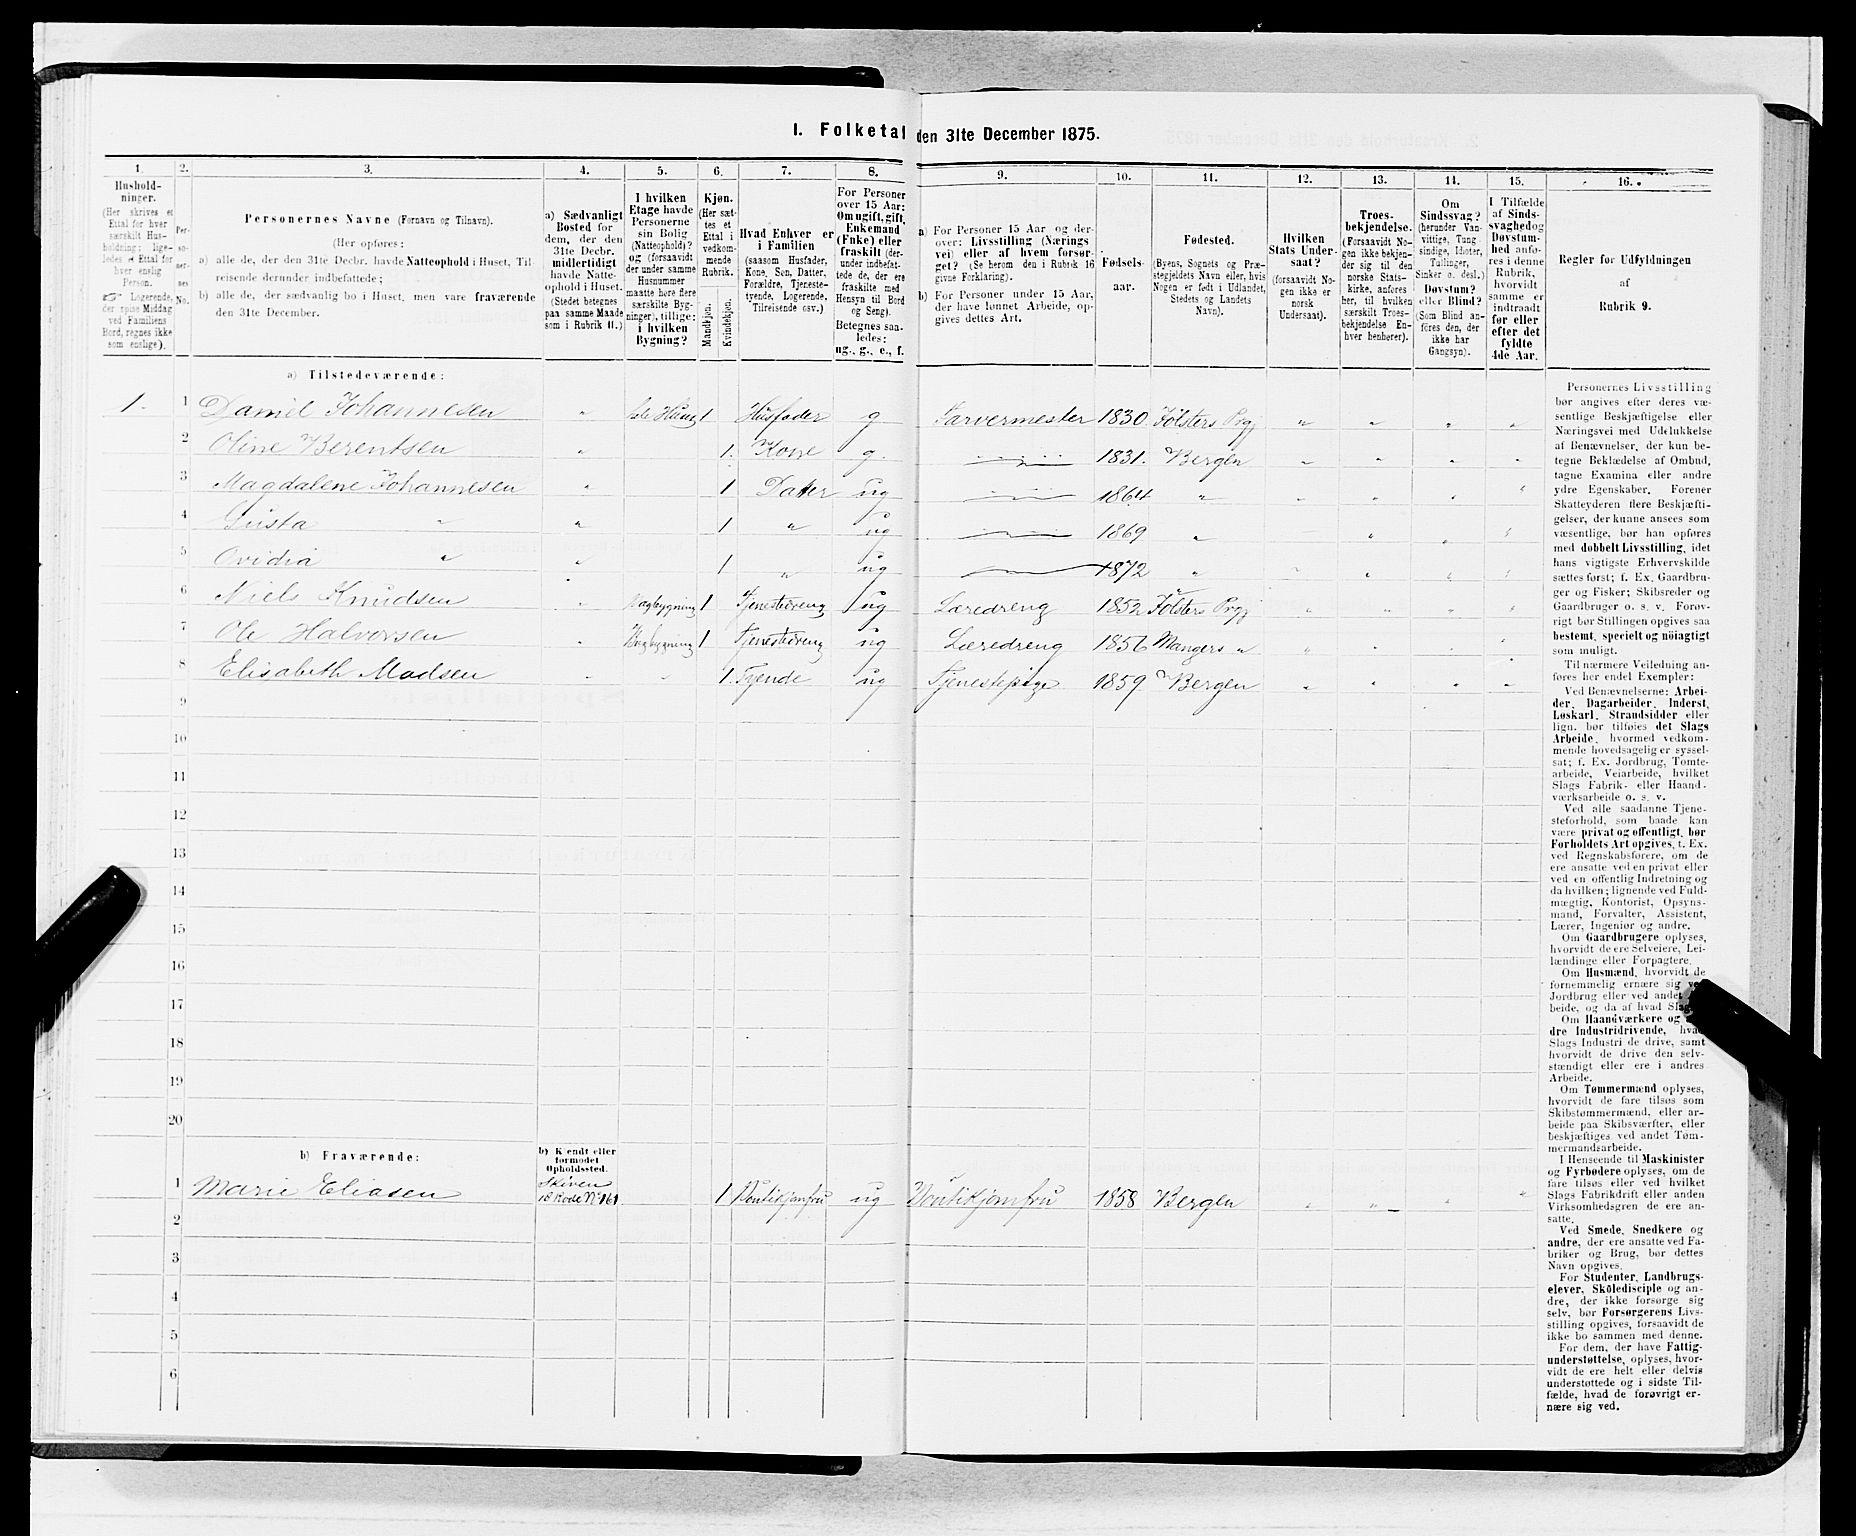 1. Folketal den 31te December 1875.
1. 2. 3. 4. 5. 6. 7. 8. 9. 10. 11. 12. 13. 14. 15. 16.
Hushold-
ninger.
(Her skrives et
Ettal for hver
særskilt Hus-
holdning; lige-
ledes et Ettal for
hver enslig
Person.
☞ Logerende,
der spise Middag
ved Familiens
Bord, regnes ikke
som enslige).
Per-
so-
ner-
nes
No.
Personernes Navne (Fornavn og Tilnavn).
(Her opføres:
a) alle de, der den 31te Decbr. havde Natteophold i Huset, Til-
reisende derunder indbefattede;
b) alle de, der sædvanlig bo i Huset, men vare fraværende
den 31te December.
a) Sædvanligt
Bosted for
dem, der den
31te Decbr.
midlertidigt
havde Natte-
ophold i Huset.
(Stedet betegnes
paa samme Maade
som i Rubrik 11.)
I hvilken
Etage havde
Personerne
sin Bolig
(Natteophold)?
og (forsaavidt
der under samme
Husnummer
maatte høre flere
særskilte Byg-
ninger), tillige:
i hvilken
Bygning?
Kjøn.
(Her sæt-
tes et
Ettal i
vedkom-
mende
Rubrik.
Mandkjøn.
Kvindekjøn.
Hvad Enhver er
i Familien
(saasom Husfader,
Kone, Søn, Datter,
Forældre, Tjeneste-
tyende, Logerende,
Tilreisende osv.)
For Personer
over 15 Aar:
Om ugift, gift,
Enkemand
(Enke) eller
fraskilt (der-
under indbefat-
tede de, der ere
fraskilte med
Hensyn til Bord
og Seng).
Betegnes saa-
ledes:
ug., g., e., f.
a) For Personer 15 Aar og der-
over: Livsstilling (Nærings
vei) eller af hvem forsør-
get? (Se herom den i Rubrik 16
givne Forklaring).
b) For Personer under 15 Aar,
der have lønnet Arbeide, op-
gives dettes Art.
Fødsels-
aar.
Fødested.
(Byens, Sognets og Præ-
stegjeldets Navn eller, hvis
Nogen er født i Udlandet,
Stedets og Landets
Navn).
Hvilken
Stats Under-
saat?
(forsaavidt No-
gen ikke er
norsk
Undersaat).
Troes-
bekjendelse.
(Forsaavidt No-
gen ikke bekjen-
der sig til den
norske Stats-
kirke, anføres
her, til hvilken
særskilt Troes-
bekjendelse En-
hver henhører).
Om
Sindssvag?
(herunder Van-
vittige, Tung
sindige, Idioter,
Tullinger,
Sinker o. desl.)
Døvstum?
eller Blind?
(Som Blind an-
føres den, der
ikke har
Gangsyn).
I Tilfælde
af Sinds-
svaghed og
Døvstum-
hed anfø-
res i denne
Rubrik,
hvorvidt
samme er
indtraadt
før eller
efter det
fyldte
4de Aar.
Regler for Udfyldningen
af
Rubrik 9.
a) Tilstedeværende:
1. 1 Daniel Johannesen " 1 Husfader g Farvermester 1830. Prgj " " " "
2 Oline Berentsen " 1. Kone g. 1831. Bergen " " " "
3 Magdalene Johannesen " 1 Datter ug 1864 " " " " "
4 Gusta " " 1 " ug 1869 " " " "
5 Ovidia " " 1 " ug 1872 " " " " "
6 Niels Knudsen " Bagbygning 1 Tjenestdreng ug Læredreng 1852 Prgj " " " "
7 Ole Halvorsen " Bagbygning 1 Tjenestdreng ug Læredreng 1856 Mangers " " " " "
8 Elisabeth Madsen " " 1. Tyende ug Tjenestepige 1859 Bergen " " " "
9
10
11
12
13
14
15
16
17
18
19
20
b) Fraværende:
b) Kjendt eller
formodet
Opholdssted.
Skiven
18 Rode No 161
1 Marie Eliasen 1 ug 1858 Bergen " " " "
2
3
4
5
6
Personernes Livsstilling
bør angives efter deres væ-
sentlige Beskjæftigelse eller
Næringsvei med Udelukkelse
af Benævnelser, der kun be-
tegne Beklædelse af Ombud,
tagne Examina eller andre
ydre Egenskaber. Forener
Skatteyderen flere Beskjæfti-
gelser, der kunne ansees som
væsentlige, bør han opføres
med dobbelt Livsstilling, idet
hans vigtigste Erhvervskilde
sættes først; f. Ex. Gaardbru-
ger og Fisker; Skibsreder og
Gaardbruger o. s. v. Forøv-
rigt bør Stillingen opgives saa
bestemt, specielt og nöiagtigt
som muligt.
Til nærmere Veiledning an-
føres her endel Exempler:
Ved Benævnelserne: Arbei-
der, Dagarbeider, Inderst,
Løskarl, Strandsidder eller
lign. bør tilføies det Slags
Arbeide, hvormed vedkom-
mende hovedsagelig er syssel-
sat; f. Ex. Jordbrug, Tomte-
arbeide, Veiarbeide, hvilket
Slags Fabrik- eller Haand-
værksarbeide o. s. v.
Ved alle saadanne Tjene-
steforhold, som baade kan
være privat og offentligt, bør
Forholdets Art opgives, t. Ex.
ved Regnskabsførere, om de
ere ansatte ved en privat eller
ved en offentlig Indretning og
da hvilken; lignende ved Fuld-
mægtig, Kontorist, Opsyns-
mand, Forvalter, Assistent,
Lærer, Ingeniør og andre.
Om Gaardbrugere oplyses,
hvorvidt de ere Selveiere, Lei-
lændinge eller Forpagtere.
Om Husmænd, hvorvidt de
fornemmelig ernære sig
Jordbrug eller ved andet
beide, og da af hvad
Om Haandværkere og
dre Industridrivende,
Slags Industri de drive, samt
hvorvidt de drive den selv-
stændigt eller ere i andres
Arbeide.
Om Tømmermænd oplyses,
hvorvidt de fare tilsøs som
Skibstømmermænd, eller ar-
beide paa Skibsværfter, eller
beskjæftiges ved andet Tøm-
mermandsarbeide.
I Henseende til Maskinister
og Fyrbødere oplyses, om de
fare tilsøs eller ved hvilket
Slags Fabrikdrift eller anden
Virksomhedsgren de ere an-
satte.
Ved Smede, Snedkere og
andre, der ere ansatte ved Fa-
briker og Brug, bør dettes
Navn opgives.
For Studenter, Landbrugs-
elever, Skoledisciple og an-
dre, der ikke forsørge sig
selv, bør Forsørgerens Livs-
stilling opgives, forsaavidt de
ikke bo sammen med denne.
For dem, der have Fattig-
understøttelse, oplyses, hvor-
vidt de ere helt eller delvis
understøttede og i sidste Til-
fælde, hvad de forøvrigt er-
nære sig ved.